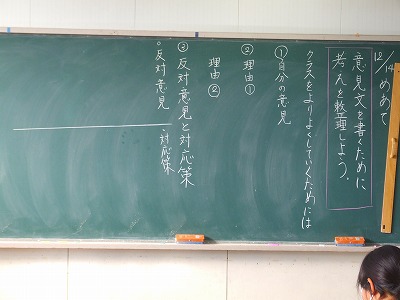 12/14 めあて
意見文を書くために
考えを整理しよう。
クラスをよりよくしていくためには
①自分の意見
②理由①
理由②
③反対意見と対応策
。反対意見
・対応策